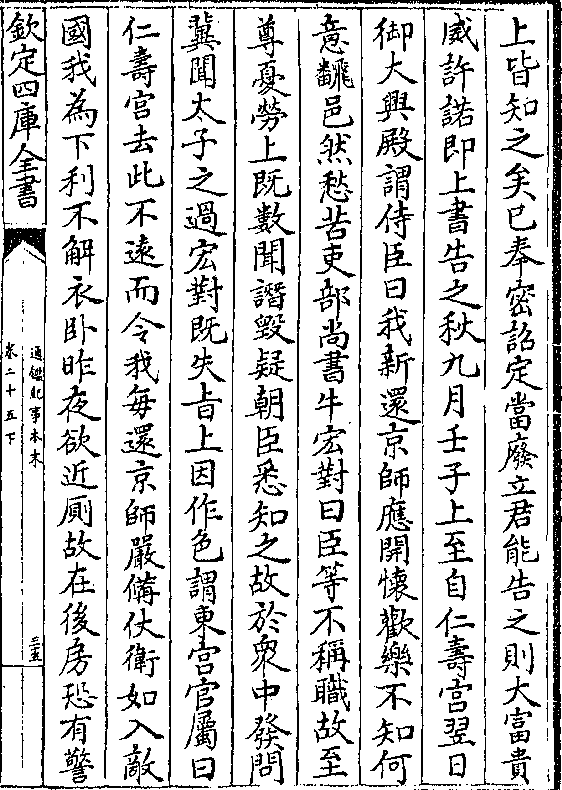 上皆知之矣已奉密詔定當廢立君能告之則大富貴
威許諾即上書告之秋九月壬子上至自仁壽宮翌日
御大興殿謂侍臣曰我新還京師應開懷歡樂不知何
意翻邑然愁苦吏部尚書牛宏對曰臣等不稱職故至
尊憂勞上既數聞譖毀疑朝臣悉知之故於衆中發問
冀聞太子之過宏對既失旨上因作色謂東宮官屬曰
仁壽宮去此不遠而令我每還京師嚴備仗衛如入敵
國我為下利不解衣卧昨夜欲近厠故在後房恐有警
欽定四庫全書
通鑑紀事本末
卷二十五下
三五